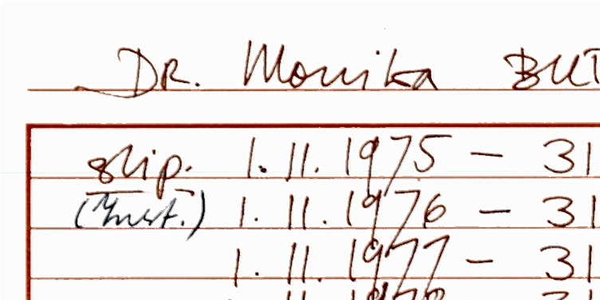 DR. Monika BUT
stip. 1.11.1975 – 31
(Inst.) 1.11.1976 – 31
1.11.1977 – 31